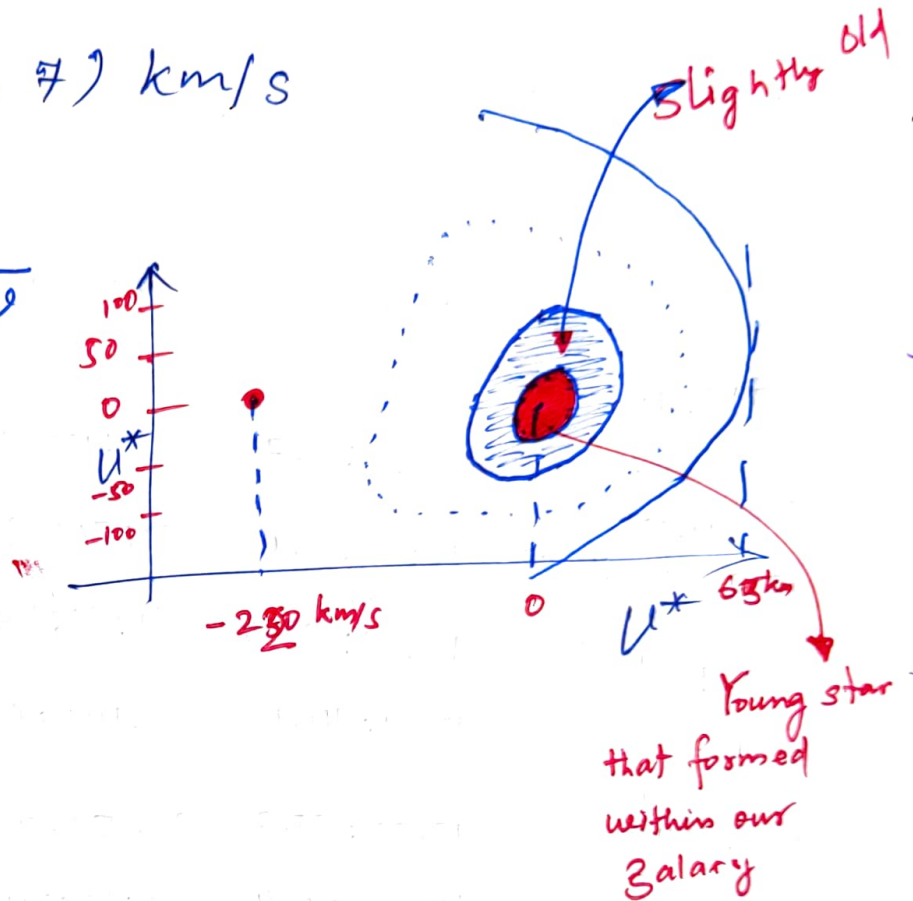 7) km/s
Slightly old
100
50
0
U*
-50
-100
-250 km/s
0
U*
65km
Young star
that formed
within our
galary